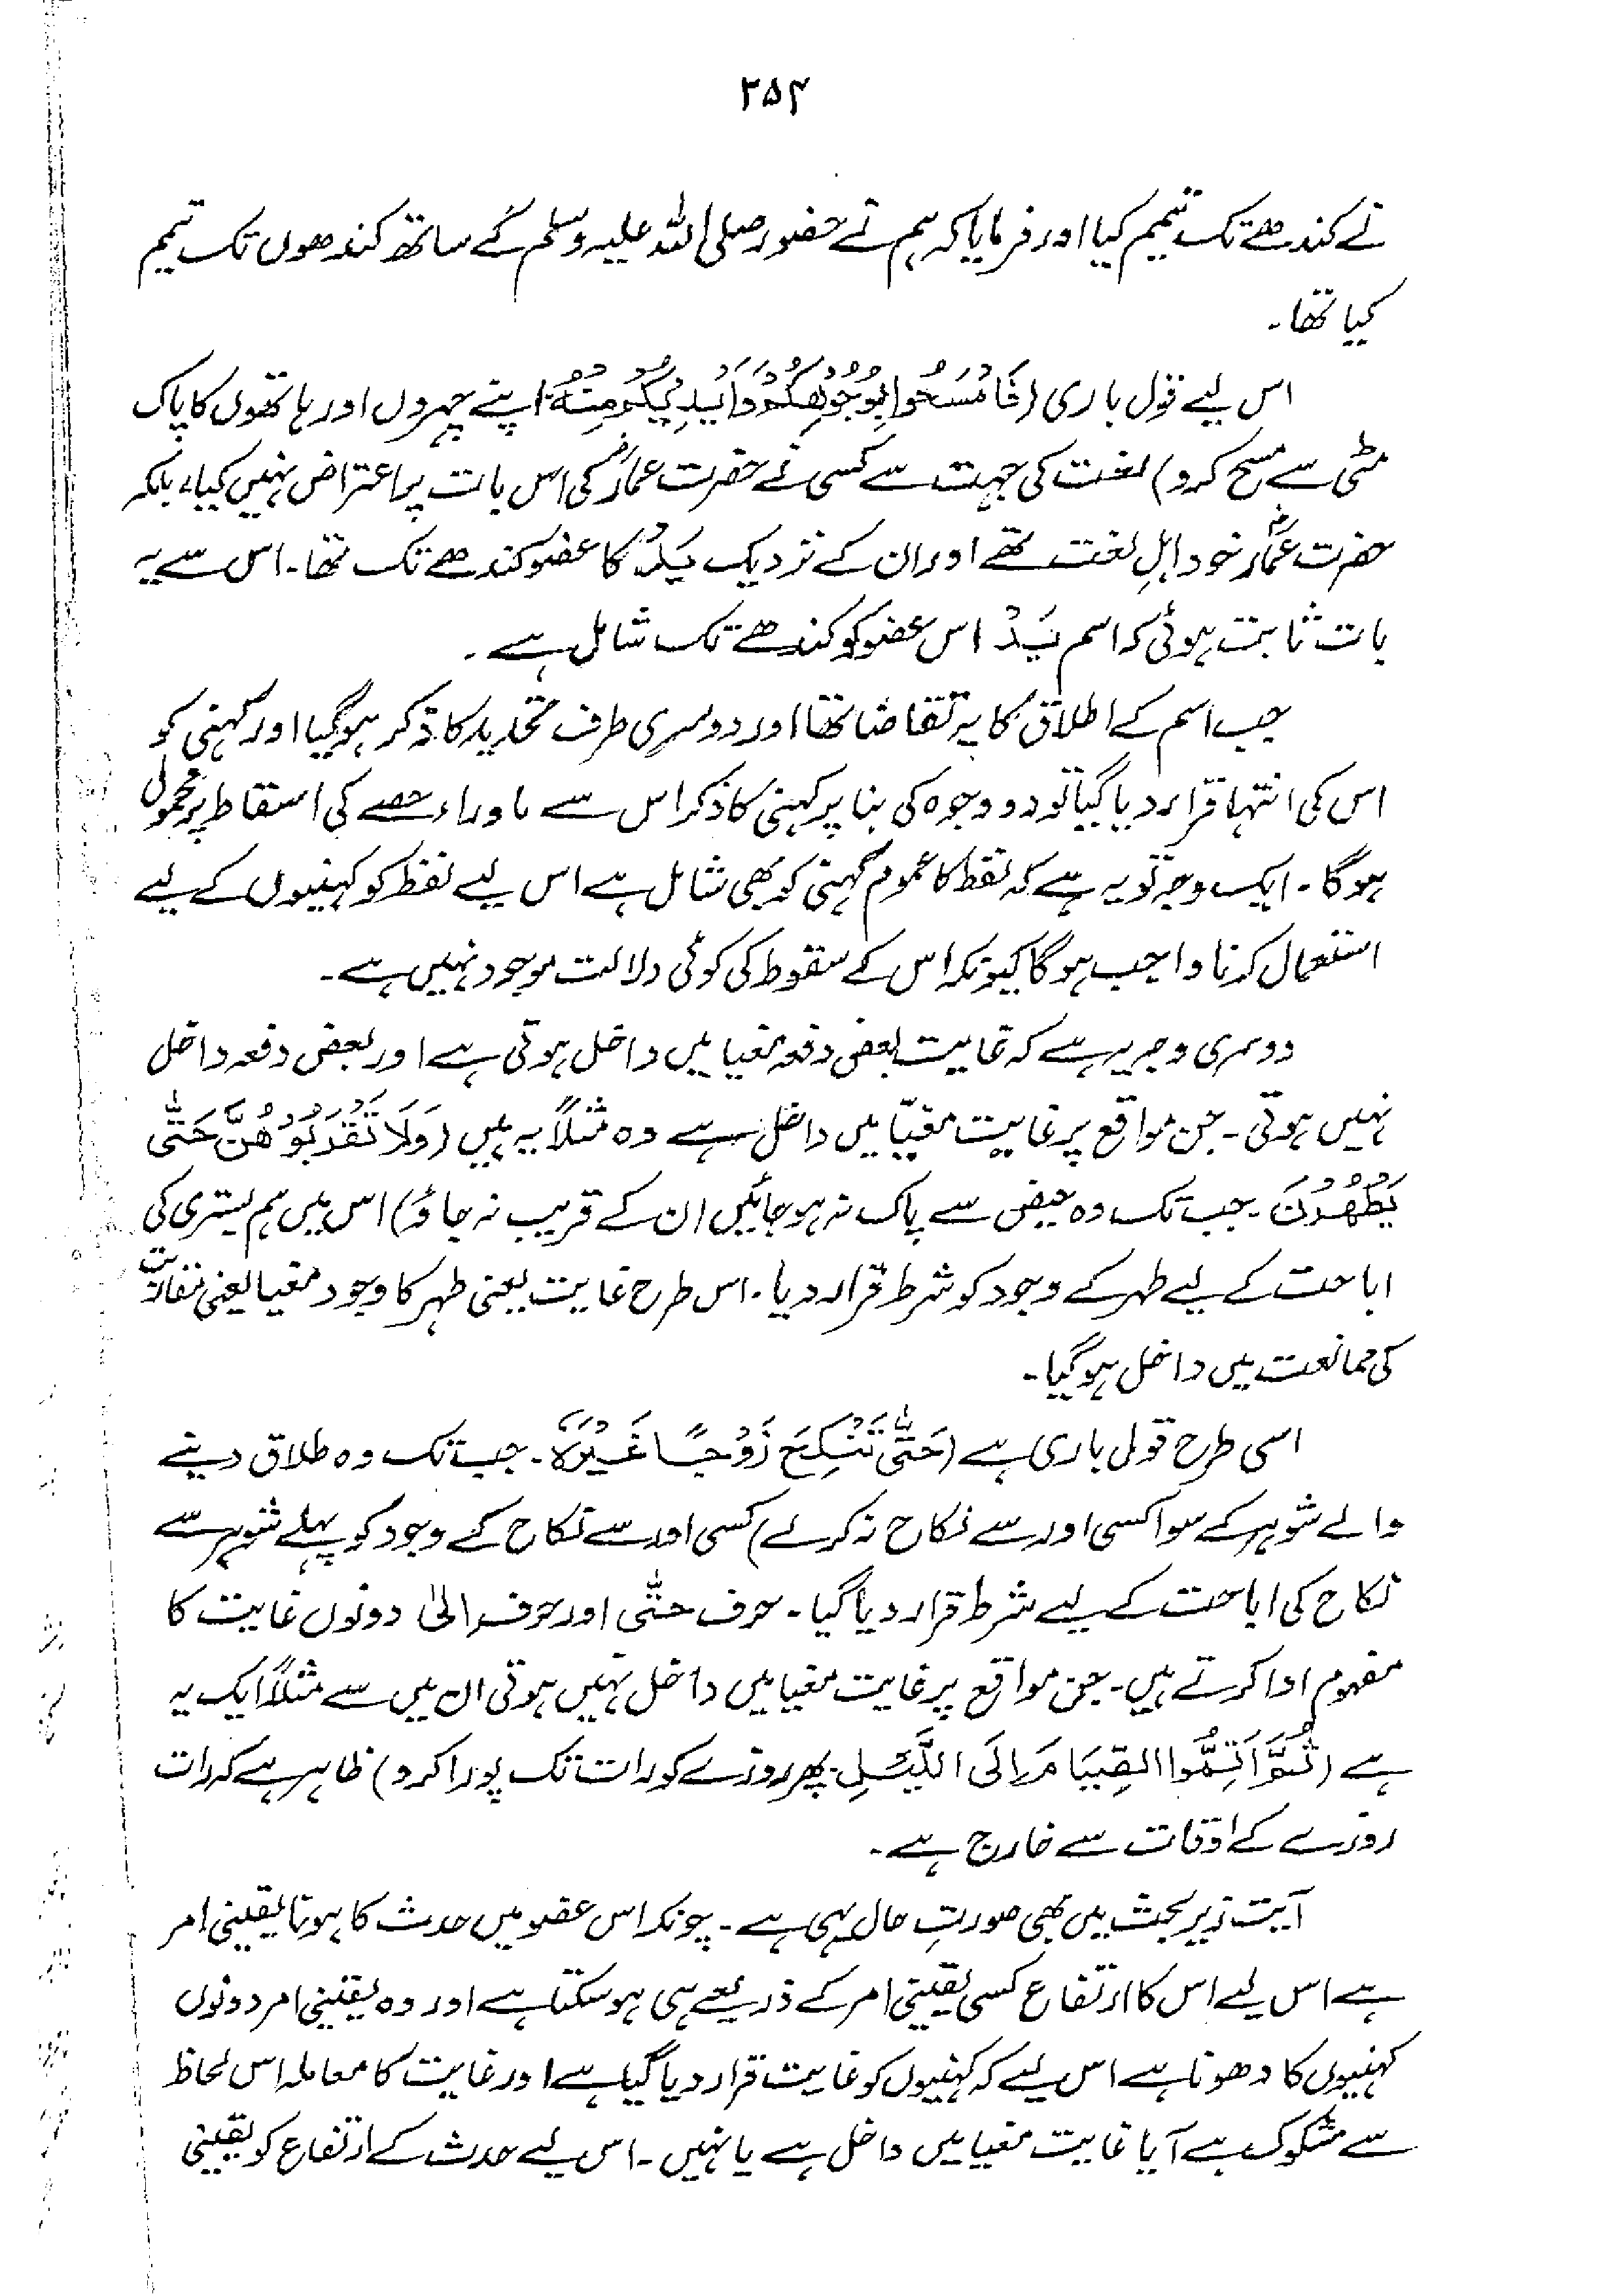 ۲۵۴
نے کندھے تک تیمم کیا اور فرمایا کہ ہم نے حضور صلی اللہ علیہ وسلم کے ساتھ کندھوں تک تیمم
کیا تھا۔
اس لیے قول باری (فَامْسَحُوا بِوُجُوْهِكُمْ وَاَيْدِيْكُمْ مِنْهُ۔ اپنے چہروں اور ہاتھوں کا پاک
مٹی سے مسح کرو) لغت کی جہت سے کسی نے حضرت عمارؓ کی اس بات پر اعتراض نہیں کیا، بلکہ
حضرت عمارؓ خود اہلِ لغت تھے اور ان کے نزدیک یَدٌ کا عضو کندھے تک تھا۔ اس سے یہ
بات ثابت ہوئی کہ اسم یَدٌ اس عضو کو کندھے تک شامل ہے۔
جب اسم کے اطلاق کا یہ تقاضا تھا اور دوسری طرف تحدید کا ذکر ہو گیا اور کہنی کو
اس کی انتہا قرار دیا گیا تو دو وجوہ کی بنا پر کہنی کا ذکر اس سے ماوراء حصے کی اسقاط پر محمول
ہوگا۔ ایک وجہ تو یہ ہے کہ لفظ کا عموم کہنی کو بھی شامل ہے اس لیے لفظ کو کہنیوں کے لیے
استعمال کرنا واجب ہوگا کیونکہ اس کے سقوط کی کوئی دلالت موجود نہیں ہے۔
دوسری وجہ یہ ہے کہ غایت بعض دفعہ مغیا میں داخل ہوتی ہے اور بعض دفعہ داخل
نہیں ہوتی۔ جن مواقع پر غایت مغیّا میں داخل ہے وہ مثلاً یہ ہیں (وَلَا تَقْرَبُوْهُنَّ حَتّٰى
يَطْهُرْنَ۔ جب تک وہ حیض سے پاک نہ ہو جائیں ان کے قریب نہ جاؤ) اس میں ہم بستری کی
اباحت کے لیے طہر کے وجود کو شرط قرار دیا۔ اس طرح غایت یعنی طہر کا وجود مغیا یعنی مقاربت
کی ممانعت میں داخل ہو گیا۔
اسی طرح قول باری ہے (حَتّٰى تَنْكِحَ زَوْجًا غَيْرَهٗ۔ جب تک وہ طلاق دینے
والے شوہر کے سوا کسی اور سے نکاح نہ کرلے) کسی اور سے نکاح کے وجود کو پہلے شوہر سے
نکاح کی اباحت کے لیے شرط قرار دیا گیا۔ حرف حتّٰی اور حرف الیٰ دونوں غایت کا
مفہوم ادا کرتے ہیں۔ جن مواقع پر غایت مغیا میں داخل نہیں ہوتی ان میں سے مثلاً ایک یہ
ہے (ثُمَّ اَتِمُّوا الصِّيَامَ اِلَى اللَّيْلِ۔ پھر روزے کو رات تک پورا کرو) ظاہر ہے کہ رات
روزے کے اوقات سے خارج ہے۔
آیت زیر بحث میں بھی صورتِ حال یہی ہے۔ چونکہ اس عضو میں حدث کا ہونا یقینی امر
ہے اس لیے اس کا ارتفاع کسی یقینی امر کے ذریعے ہی ہو سکتا ہے اور وہ یقینی امر دونوں
کہنیوں کا دھونا ہے اس لیے کہ کہنیوں کو غایت قرار دیا گیا ہے اور غایت کا معاملہ اس لحاظ
سے مشکوک ہے آیا غایت مغیا میں داخل ہے یا نہیں۔ اس لیے حدث کے ارتفاع کو یقینی